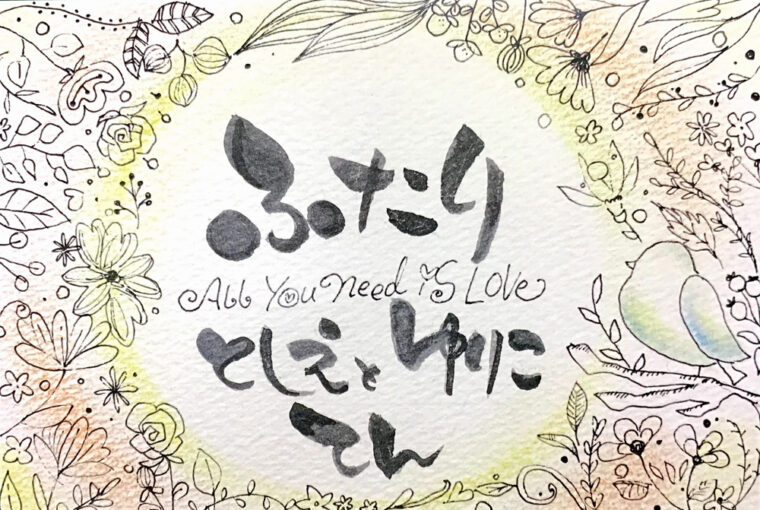 ふたり
All You need is Love
としえとゆりこ
てん